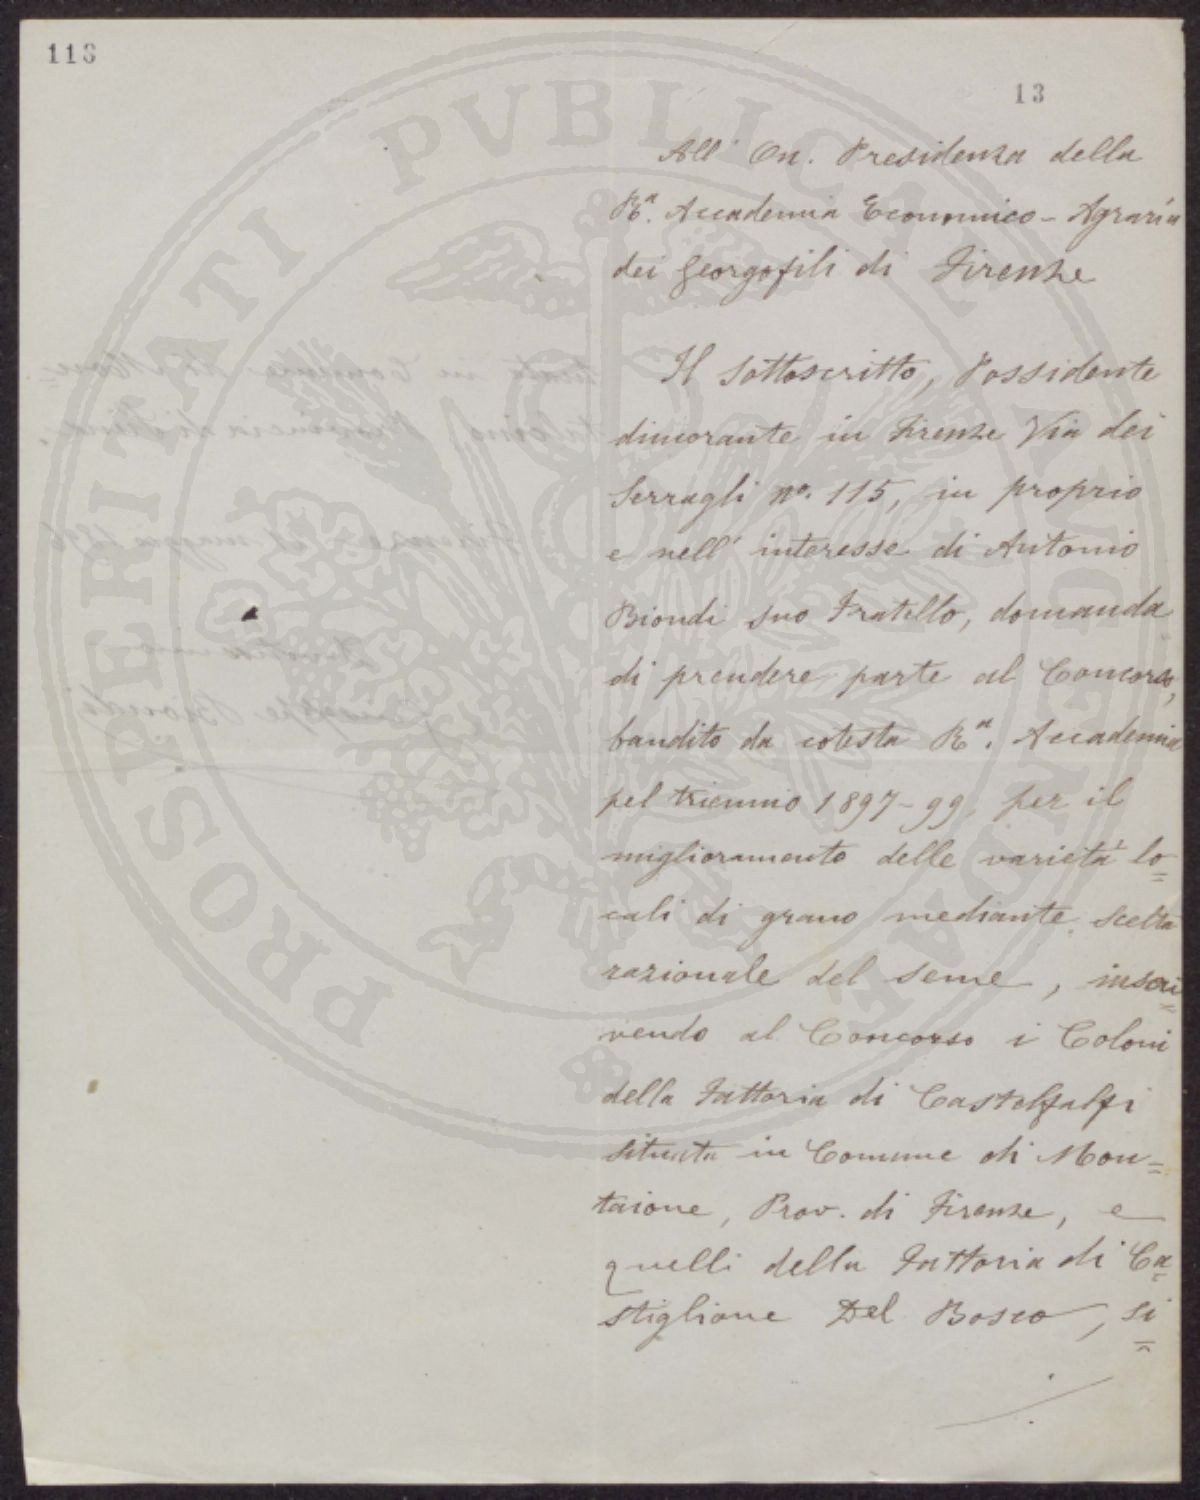 113
13
All' On. Presidenza della
R.ª Accademia Economico-Agraria
dei Georgofili di Firenze
Il Sottoscritto, Possidente
dimorante in Firenze Via dei
Serragli nº. 115, in proprio
e nell' interesse di Antonio
Biondi suo Fratello, domanda
di prendere parte al Concorso,
bandito da cotesta R.ª Accademia
pel triennio 1897-99, per il
miglioramento delle varietà lo=
cali di grano mediante scelta
razionale del seme, inscri=
vendo al Concorso i Coloni
della Fattoria di Castelfalfi
situata in Comune di Mon=
taione, Prov. di Firenze, e
quelli della Fattoria di Ca=
stiglione Del Bosco, si=
PROSPERITATI PVBLICAE